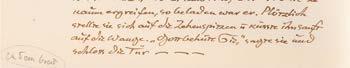 kaum ergreifen, so beladen war er. Plötzlich
stellte sie sich auf die Zehenspitzen u küsste ihn sanft
auf die Wange. „Gott behüte Sie," sagte sie und
schloss die Tür — — —